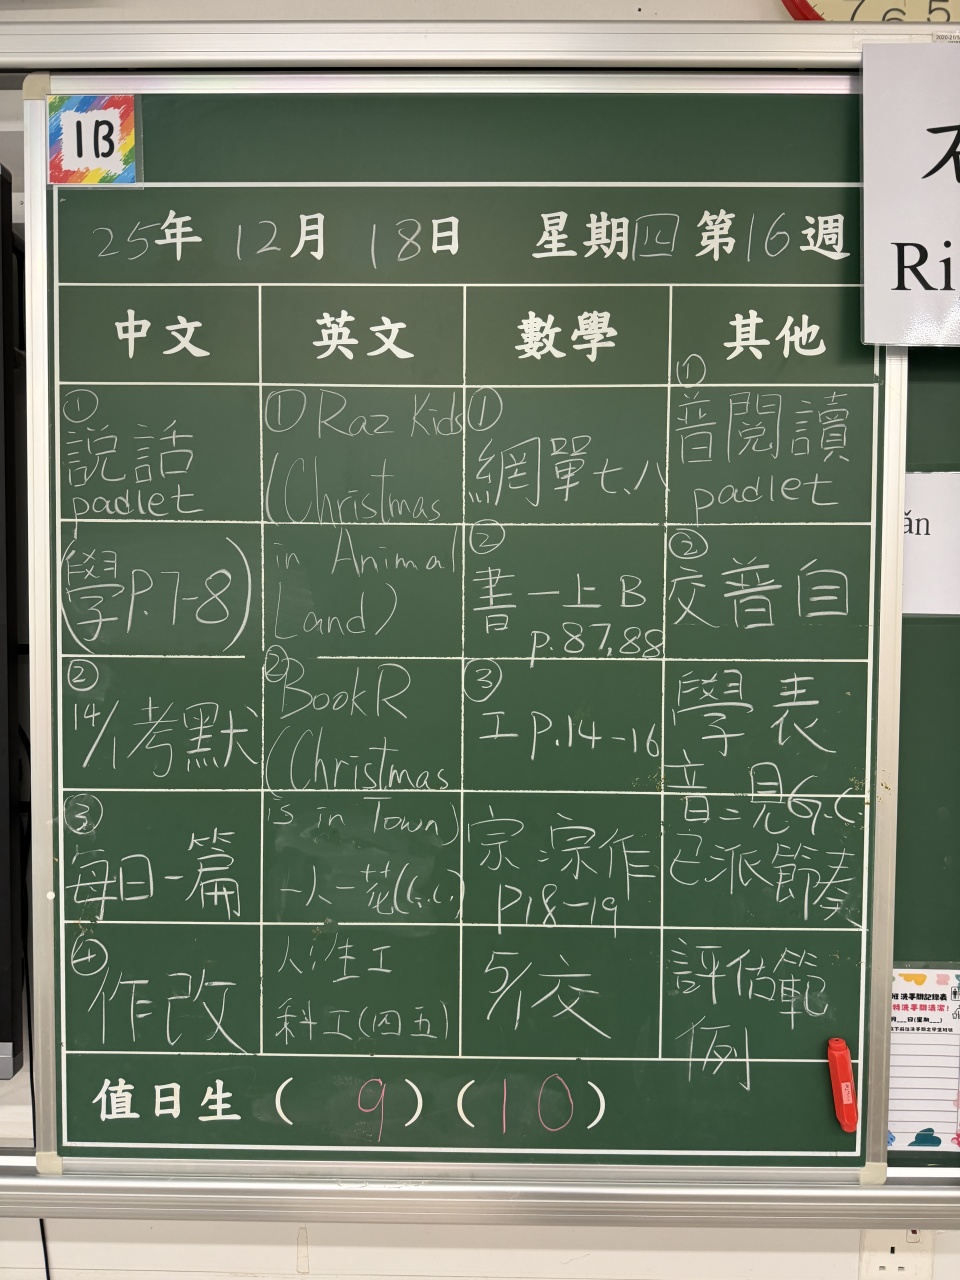 1B
25年 12月 18日 星期四 第16週
中文
英文
數學
其他
①
説話
padlet
(學P.7-8)
②
14/1考默
③
每日一篇
④
作改
① Raz Kids
(Christmas
in Animal
Land)
② Book R
(Christmas
is in Town)
一人一花(G.C.)
人生工
科工(四五)
①
網單七、八
②
書一上B
p.87,88
③
工P.14-16
宗:宗作
P18-19
5/1交
①
普閱讀
padlet
②
交普自
學表
音:見G.C.
已派節奏
評估範
例
值日生 ( 9 ) ( 10 )
Ri
ǎn